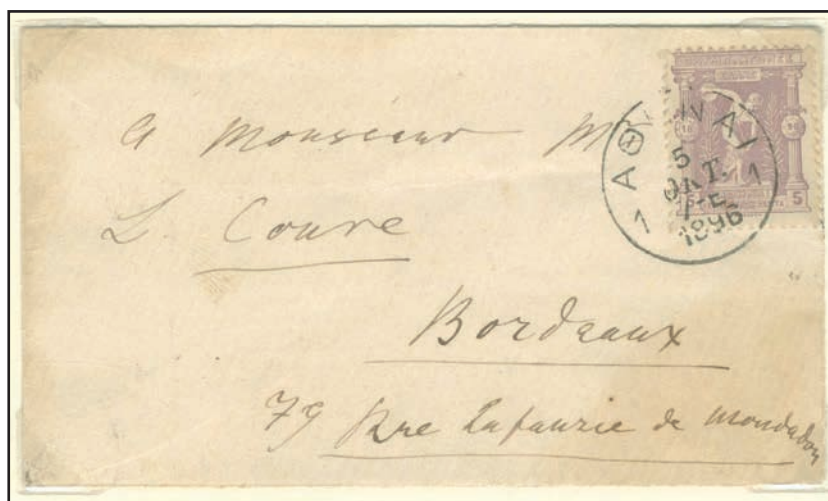 A Monsieur Mr
L. Couve
Bordeaux
79 Rue Lafaurie de Mondadon
1 ΑΘΗΝΑΙ 1
5
ΟΚΤ.
1896
5